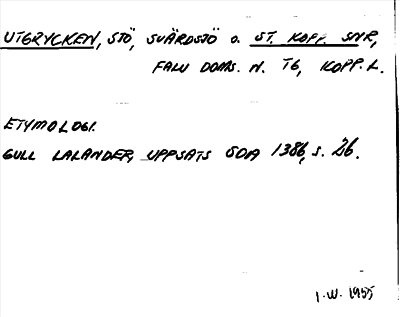 UTGRYCKEN, SJÖ, SVÄRDSJÖ O. ST. KOPP. SNR,
FALU DOMS. N. TG, KOPP. L.
ETYMOLOGI.
GULL LALANDER, UPPSATS SOA 1386, S. 26.
I. W. 1955